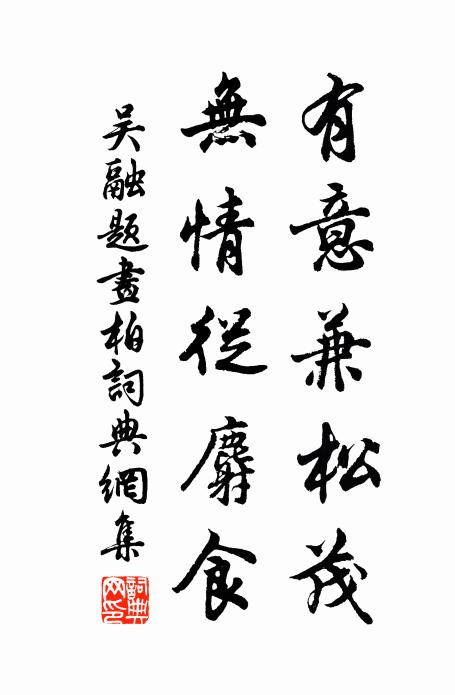 有意兼松茂
無情從麝食
吳融題畫柏詞典網集
詞典網印